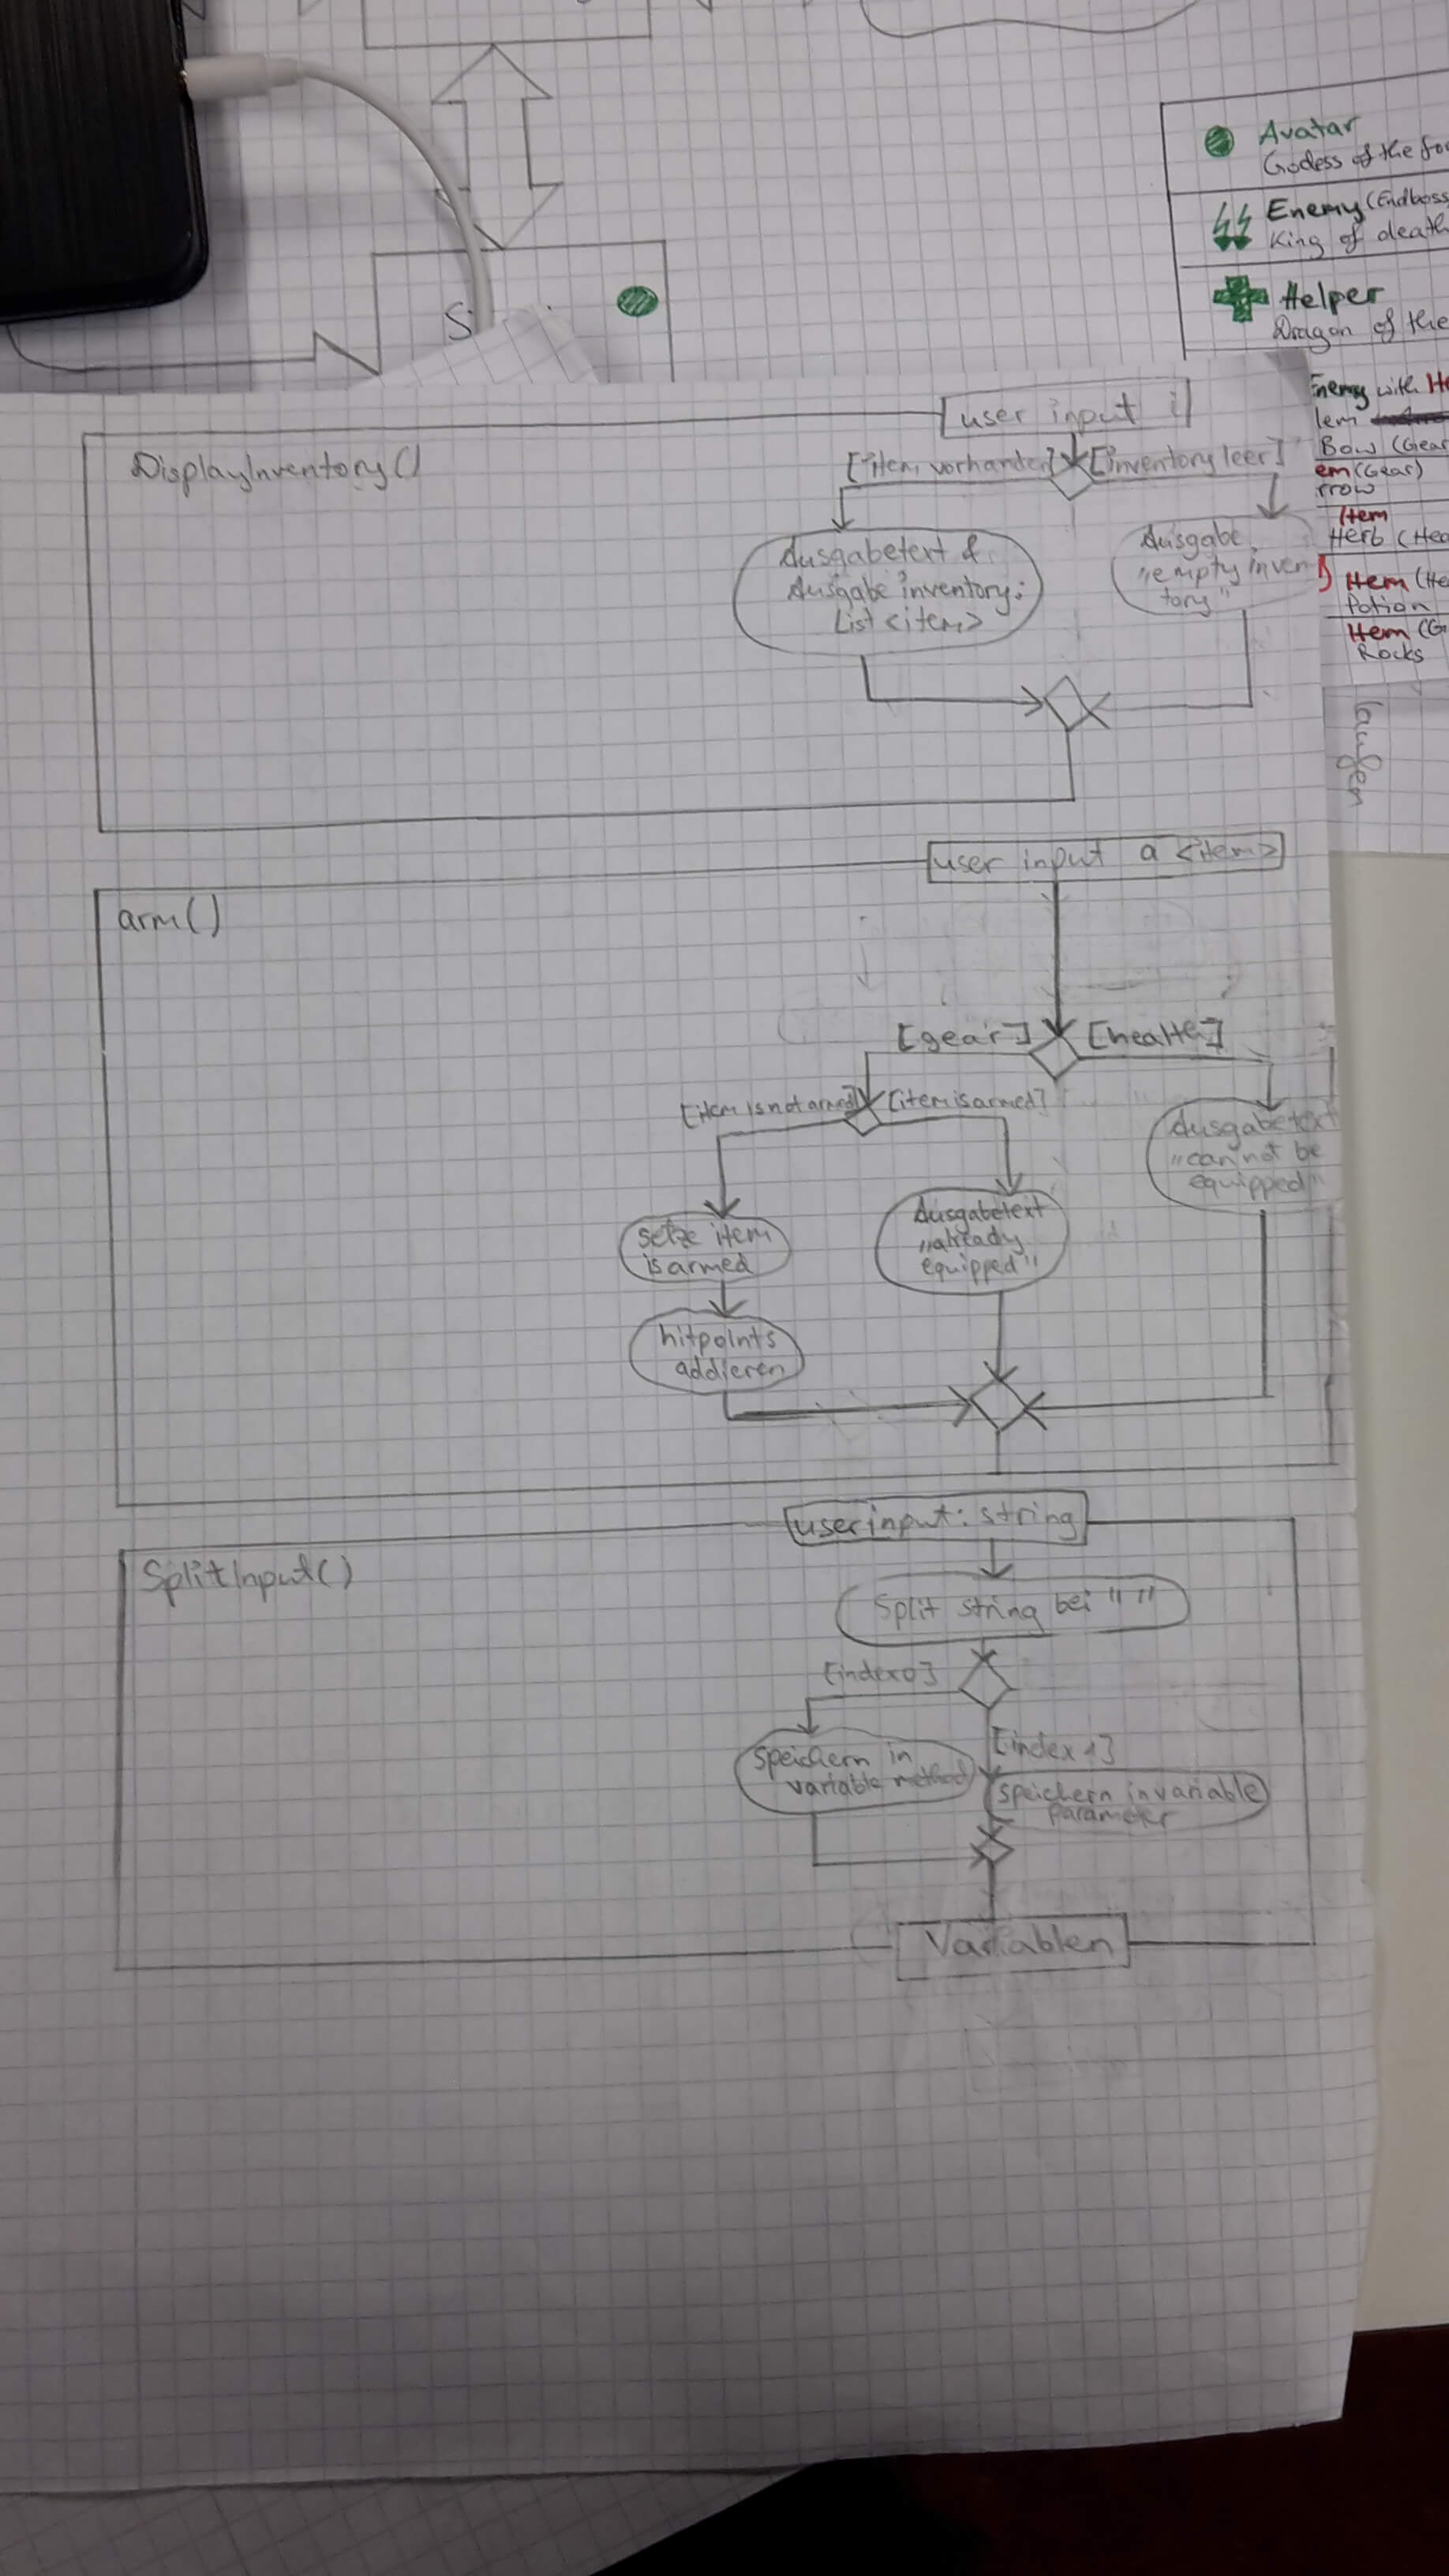 Avatar
Godess of the
Enemy (Endboss
King of death
Helper
Dragon of the
Enemy with
Bow (Gear
(Gear)
Item
Herb
Item
Potion
Item
Rocks
laufen
user input i
DisplayInventory()
[item vorhanden] [inventory leer]
Ausgabetext &
Ausgabe inventory:
List <item>
Ausgabe
"empty inven
tory"
user input a <item>
arm()
[gear] [health]
[item is not armed] [item is armed]
Ausgabetext
"can not be
equipped"
setze item
is armed
Ausgabetext
"already
equipped"
hitpoints
addieren
userinput: string
SplitInput()
Split string bei " "
[index 0]
[index 1]
speichern in
variable method
speichern in variable
parameter
Variablen